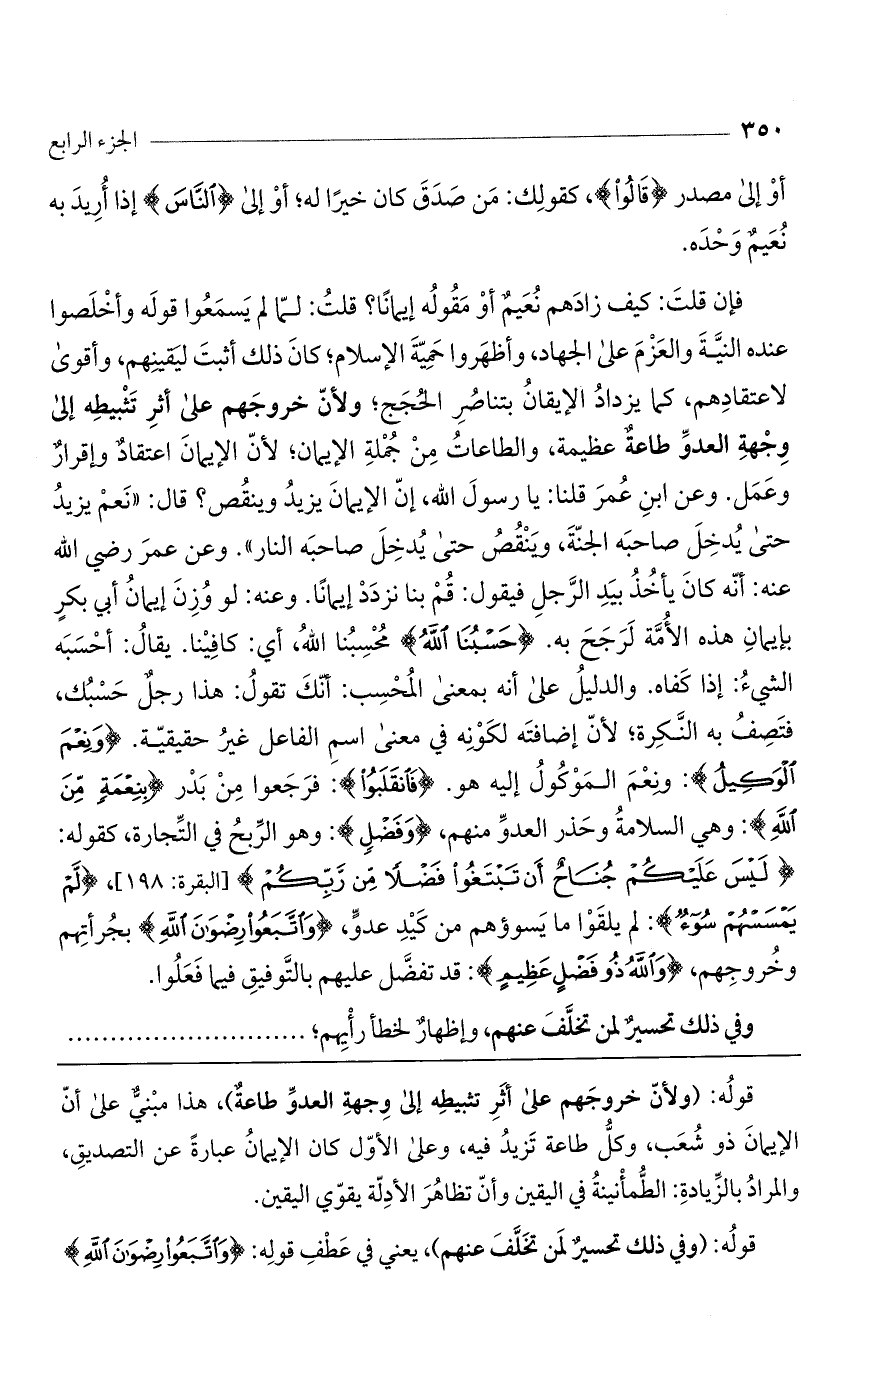 ٣٥٠ الجزء الرابع
أوْ إلىٰ مصدر ﴿قَالُواْ﴾، كقولِك: مَن صَدَقَ كان خيرًا له؛ أوْ إلىٰ ﴿ٱلنَّاسَ﴾ إذا أُرِيدَ به
نُعَيمٌ وَحْدَه.
فإن قلتَ: كيف زادَهم نُعَيمٌ أوْ مَقُولُه إيمانًا؟ قلتُ: لـمّا لم يَسمَعُوا قولَه وأخْلَصوا
عنده النيَّةَ والعَزْمَ علىٰ الجهاد، وأظهَروا حَمِيّةَ الإسلام؛ كانَ ذلك أثبتَ ليَقينِهم، وأقوىٰ
لاعتقادِهم، كما يزدادُ الإيقانُ بتناصُرِ الحُجَج؛ ولأنّ خروجَهم علىٰ أثرِ تَثْبيطِه إلىٰ
وِجْهةِ العدوِّ طاعةٌ عظيمة، والطاعاتُ مِنْ جُمْلةِ الإيمان؛ لأنّ الإيمانَ اعتقادٌ وإقرارٌ
وعَمَل. وعن ابنِ عُمرَ قلنا: يا رسولَ الله، إنّ الإيمانَ يزيدُ وينقُص؟ قال: «نَعمْ يزيدُ
حتىٰ يُدخِلَ صاحبَه الجنّةَ، ويَنْقُصُ حتىٰ يُدخِلَ صاحبَه النار». وعن عمرَ رضي الله
عنه: أنّه كانَ يأخُذُ بيَدِ الرَّجلِ فيقول: قُمْ بنا نزدَدْ إيمانًا. وعنه: لو وُزِنَ إيمانُ أبي بكرٍ
بإيمانِ هذه الأُمَّة لَرَجَحَ به. ﴿حَسْبُنَا ٱللَّهُ﴾ مُحْسِبُنا اللهُ، أي: كافِيْنا. يقالُ: أحْسَبَه
الشيءُ: إذا كَفاه. والدليلُ علىٰ أنه بمعنىٰ المُحْسِب: أنّكَ تقولُ: هذا رجلٌ حَسْبُك،
فتَصِفُ به النَّكِرة؛ لأنّ إضافتَه لكَوْنِه في معنىٰ اسمِ الفاعل غيرُ حقيقيّة. ﴿وَنِعْمَ
ٱلْوَكِيلُ﴾: ونِعْمَ الـمَوْكُولُ إليه هو. ﴿فَٱنقَلَبُواْ﴾: فرَجَعوا مِنْ بَدْر ﴿بِنِعْمَةٍ مِّنَ
ٱللَّهِ﴾: وهي السلامةُ وحَذر العدوِّ منهم، ﴿وَفَضْلٍ﴾: وهو الرِّبحُ في التِّجارة، كقوله:
﴿لَيْسَ عَلَيْكُمْ جُنَاحٌ أَن تَبْتَغُواْ فَضْلًا مِّن رَّبِّكُمْ﴾ [البقرة: ١٩٨]، ﴿لَّمْ
يَمْسَسْهُمْ سُوٓءٌ﴾: لم يلقَوْا ما يَسوؤهم من كَيْدِ عدوٍّ، ﴿وَٱتَّبَعُواْ رِضْوَٰنَ ٱللَّهِ﴾ بجُرأتِهم
وخُروجِهم، ﴿وَٱللَّهُ ذُو فَضْلٍ عَظِيمٍ﴾: قد تفضَّل عليهم بالتَّوفيقِ فيما فَعَلُوا.
وفي ذلك تحسيرٌ لمن تخلَّفَ عنهم، وإظهارٌ لخطأ رأْيِهم؛ ............................
قولُه: (ولأنّ خروجَهم علىٰ أثَرِ تثبيطِه إلىٰ وِجهةِ العدوِّ طاعةٌ)، هذا مبْنيٌّ علىٰ أنّ
الإيمانَ ذو شُعَب، وكلُّ طاعة تَزيدُ فيه، وعلىٰ الأوّل كان الإيمانُ عبارةً عن التصديقِ،
والمرادُ بالزِّيادةِ: الطُّمأْنينةُ في اليقين وأنّ تظاهُرَ الأدِلّة يقوّي اليقين.
قولُه: (وفي ذلك تحسيرٌ لمَن تخلَّفَ عنهم)، يعني في عَطْفِ قولِه: ﴿وَٱتَّبَعُواْ رِضْوَٰنَ ٱللَّهِ﴾